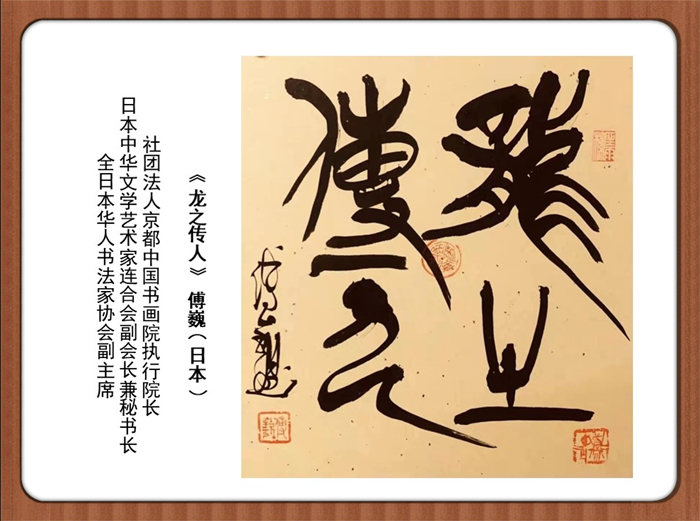 龍之
傳人
《龙之传人》 傅巍（日本）
社团法人京都中国书画院执行院长
日本中华文学艺术家连合会副会长兼秘书长
全日本华人书法家协会副主席